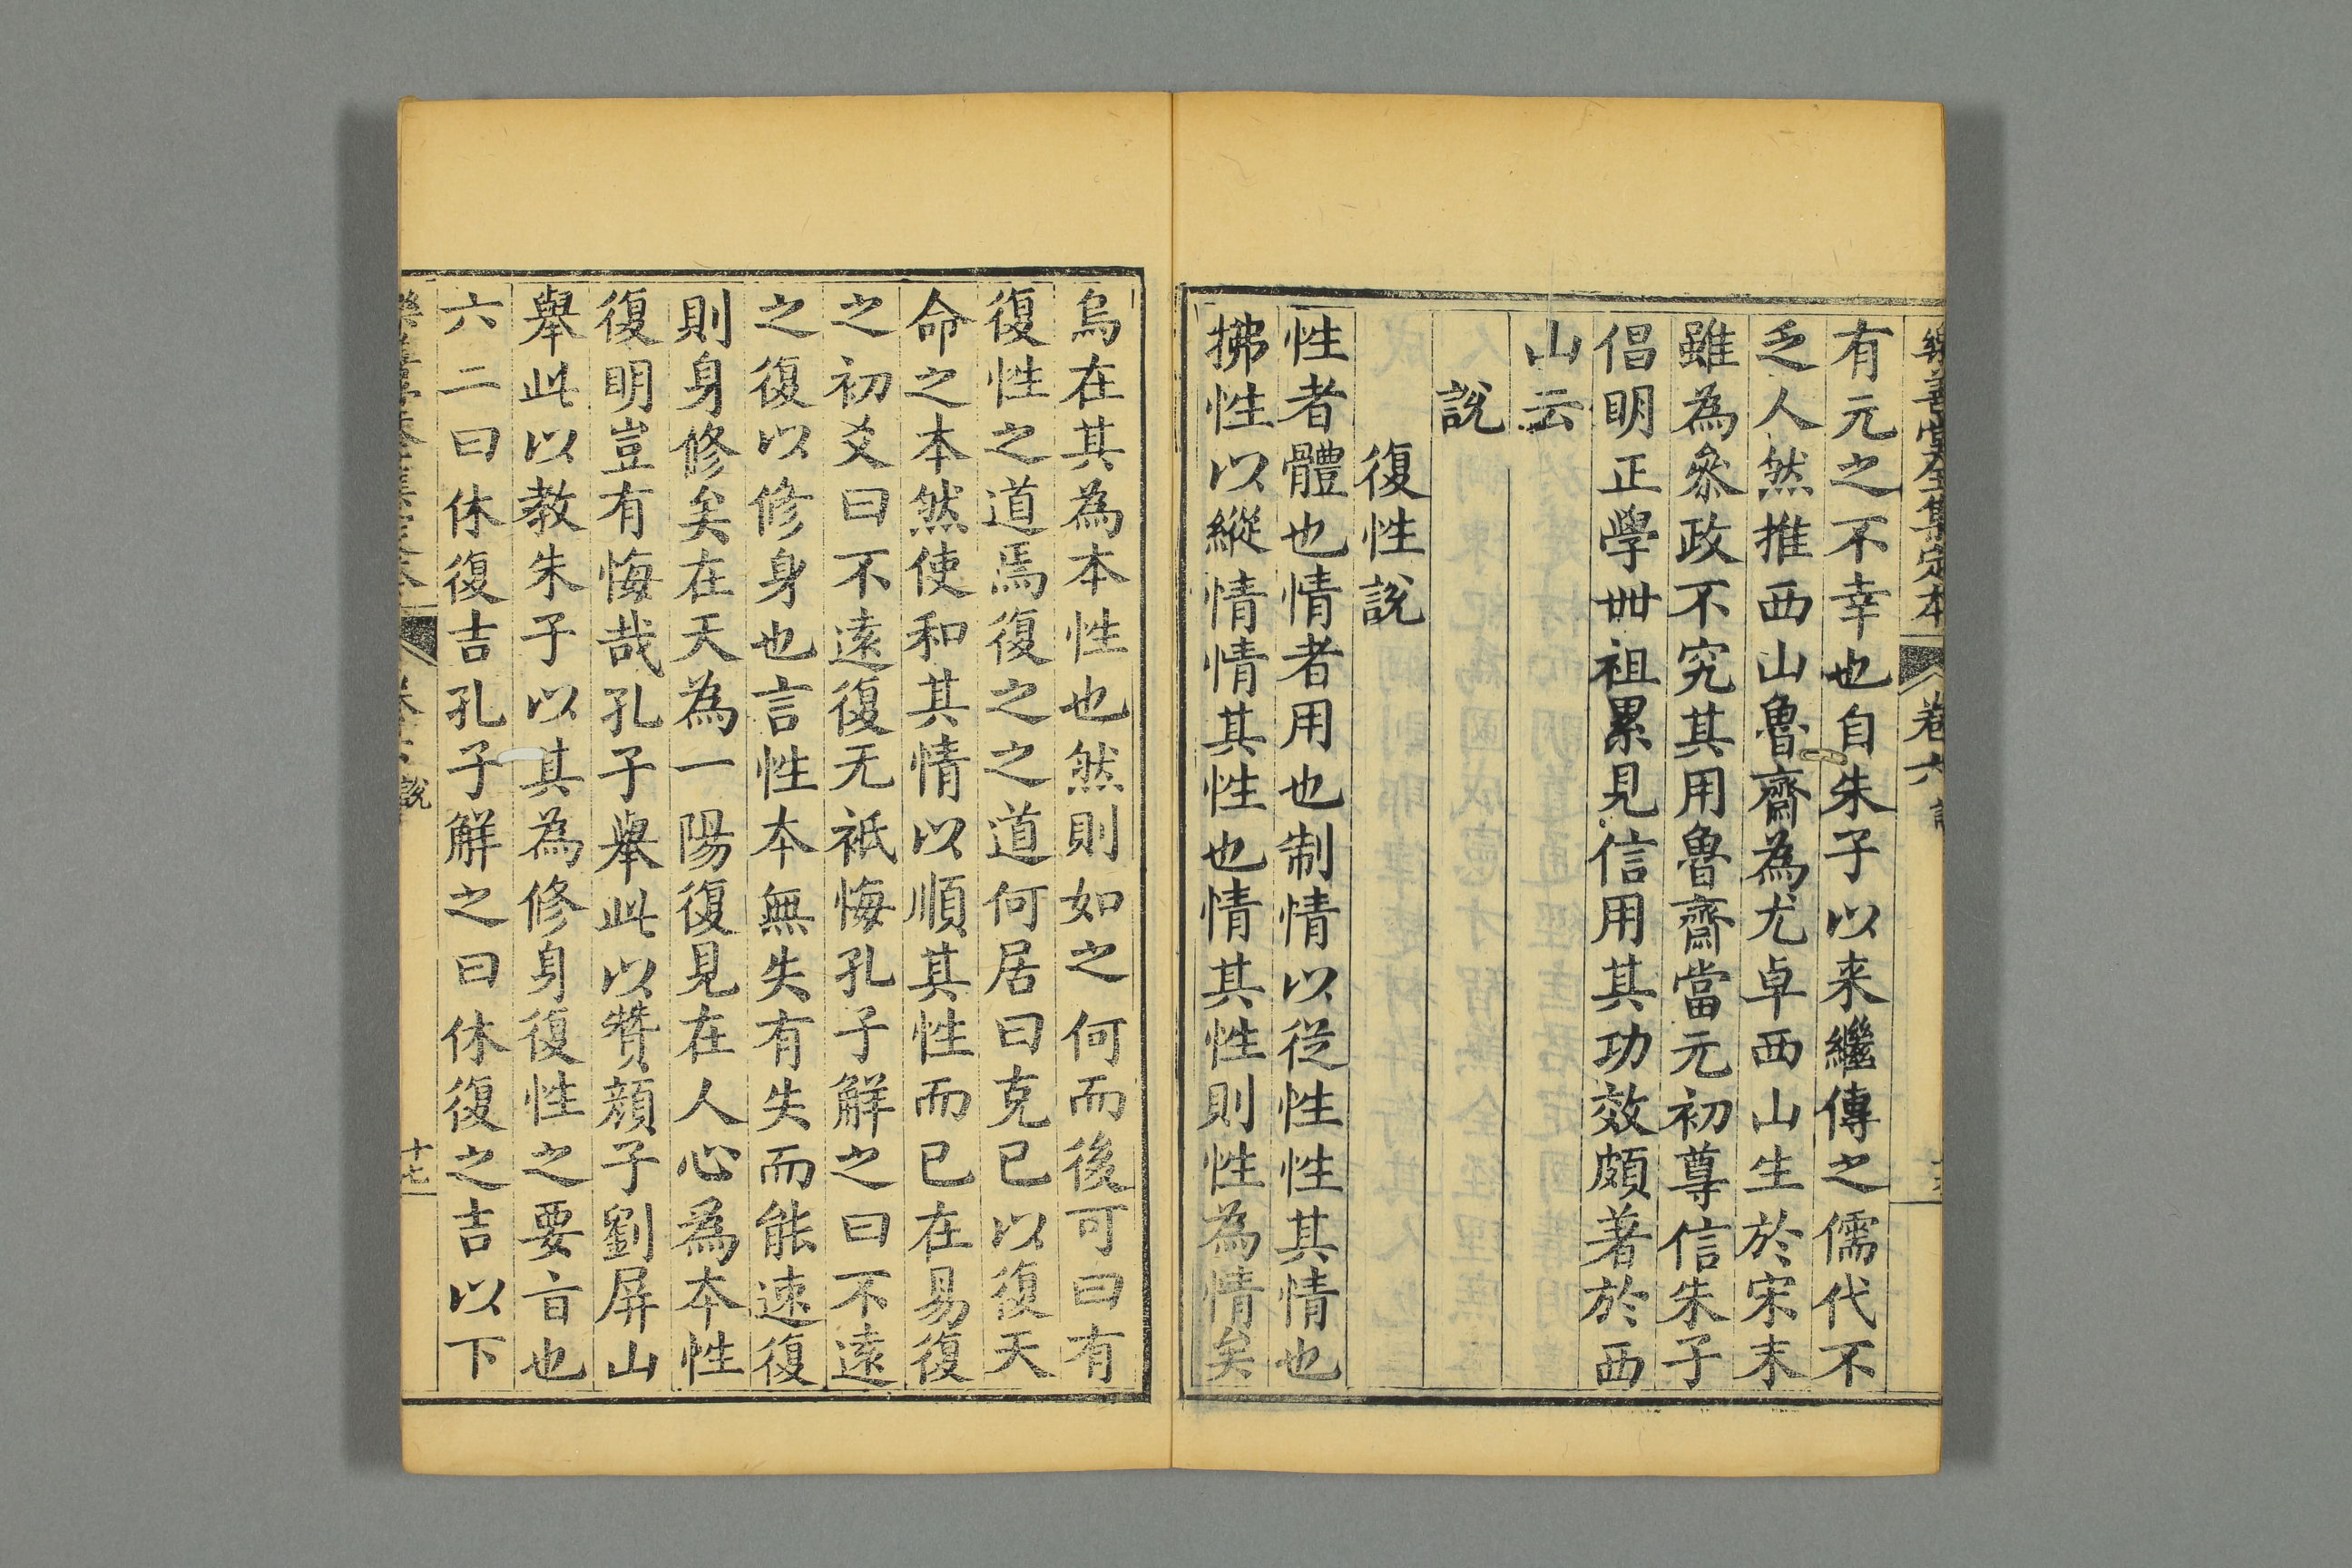 樂善堂全集定本 卷六 說
有元之不幸也自朱子以来繼傳之儒代不
乏人然推西山魯齋為尤卓西山生於宋末
雖為叅政不究其用魯齋當元初尊信朱子
倡明正學丗祖累見信用其功效頗著於西
山云
說
復性說
性者體也情者用也制情以從性性其情也
拂性以縱情情其性也情其性則性為情矣
烏在其為本性也然則如之何而後可曰有
復性之道焉復之之道何居曰克已以復天
命之本然使和其情以順其性而已在易復
之初爻曰不遠復无祇悔孔子解之曰不遠
之復以修身也言性本無失有失而能速復
則身修矣在天為一陽復見在人心為本性
復明豈有悔哉孔子舉此以贊顔子劉屏山
舉此以教朱子以其為修身復性之要旨也
六二曰休復吉孔子解之曰休復之吉以下
樂善堂全集定本 卷六 說 十七